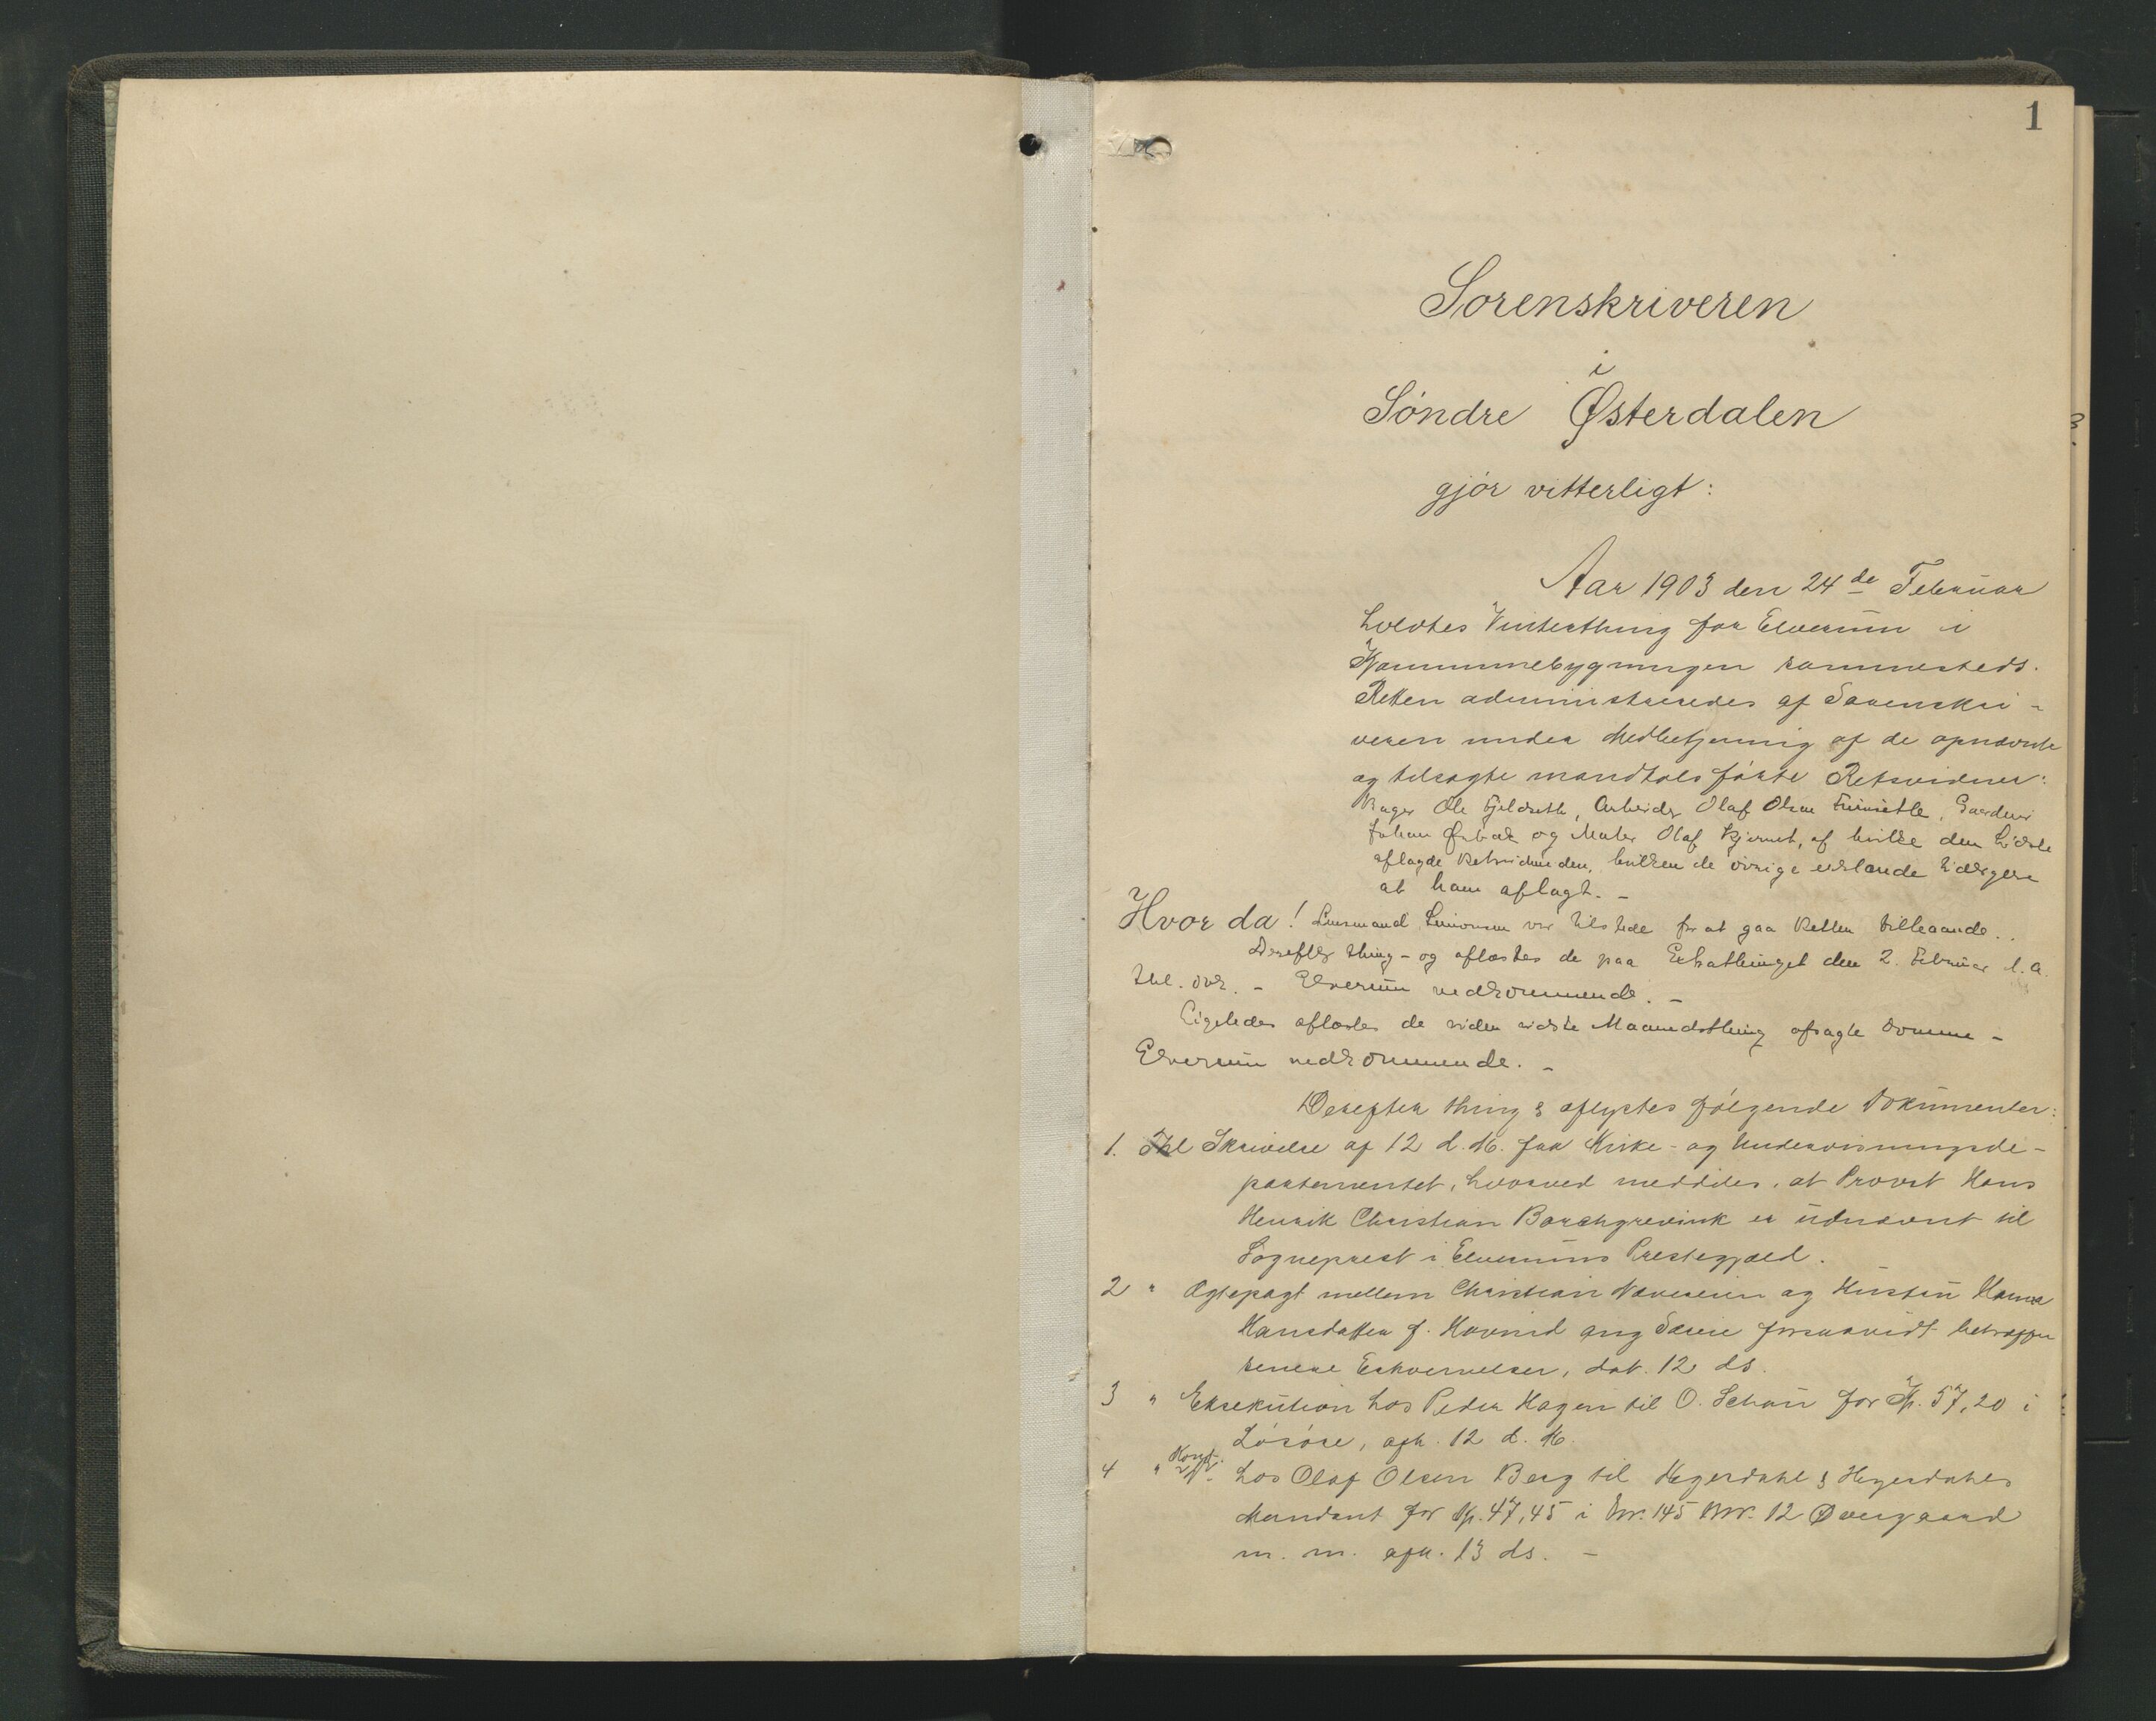 1
Sorenskriveren
i
Søndre Østerdalen
gjør vitterligt:
Aar 1903 den 24de Februar
holdtes Vinterthing for Elverum i
Kommunebygningen sammesteds.
Retten administreredes af Sorenskri-
veren under Medbetjening af de opnævnte
og tilsagte mandtalsførte Retsvidner:
Bager Ole Fjeldseth, Arbeider Olaf Olsen, Gaardeier
Johan og Maler Olaf Kjernet, af hvilke den sidste
aflagde Retsvidneeden, hvilken de øvrige erklærede tidligere
at have aflagt. -
Hvor da! Lensmand Simonsen var tilstede for at gaa Retten tilhaande.
Derefter thing- og aflæstes de paa Extrathinget den 2. Februar d. a.
thl. Dok. - Elverum vedkommende. -
Ligeledes aflæstes de siden sidste Maanedsthing afsagte Domme -
Elverum vedkommende. -
Derefter thing & aflystes følgende Dokumenter:
1. Thl Skrivelse af 12 d. M. fra Kirke- og Undervisningsde-
partementet, hvorved meddeles, at Provst Hans
Henrik Christian Borchgrevink er udnævnt til
Sogneprest i Elverums Prestegjæld.
2 " Ægtepagt mellem Christian og Hustru Hanna
Hansdatter f. ang Særeie forsaavidt betræffer
senere Erhvervelser, dat. 12 ds.
3 " Eksekution hos Peder Hagen til O. Schou for Kr. 57,20 i
Løsøre, afh. 12 d. M.
4 " hos Olaf Olsen Berg til Heyerdahl & Heyerdahls
Mandant for Kr. 47,45 i Gnr. 145 Bnr. 12 Øvergaard
m. m. afh. 13 ds. -